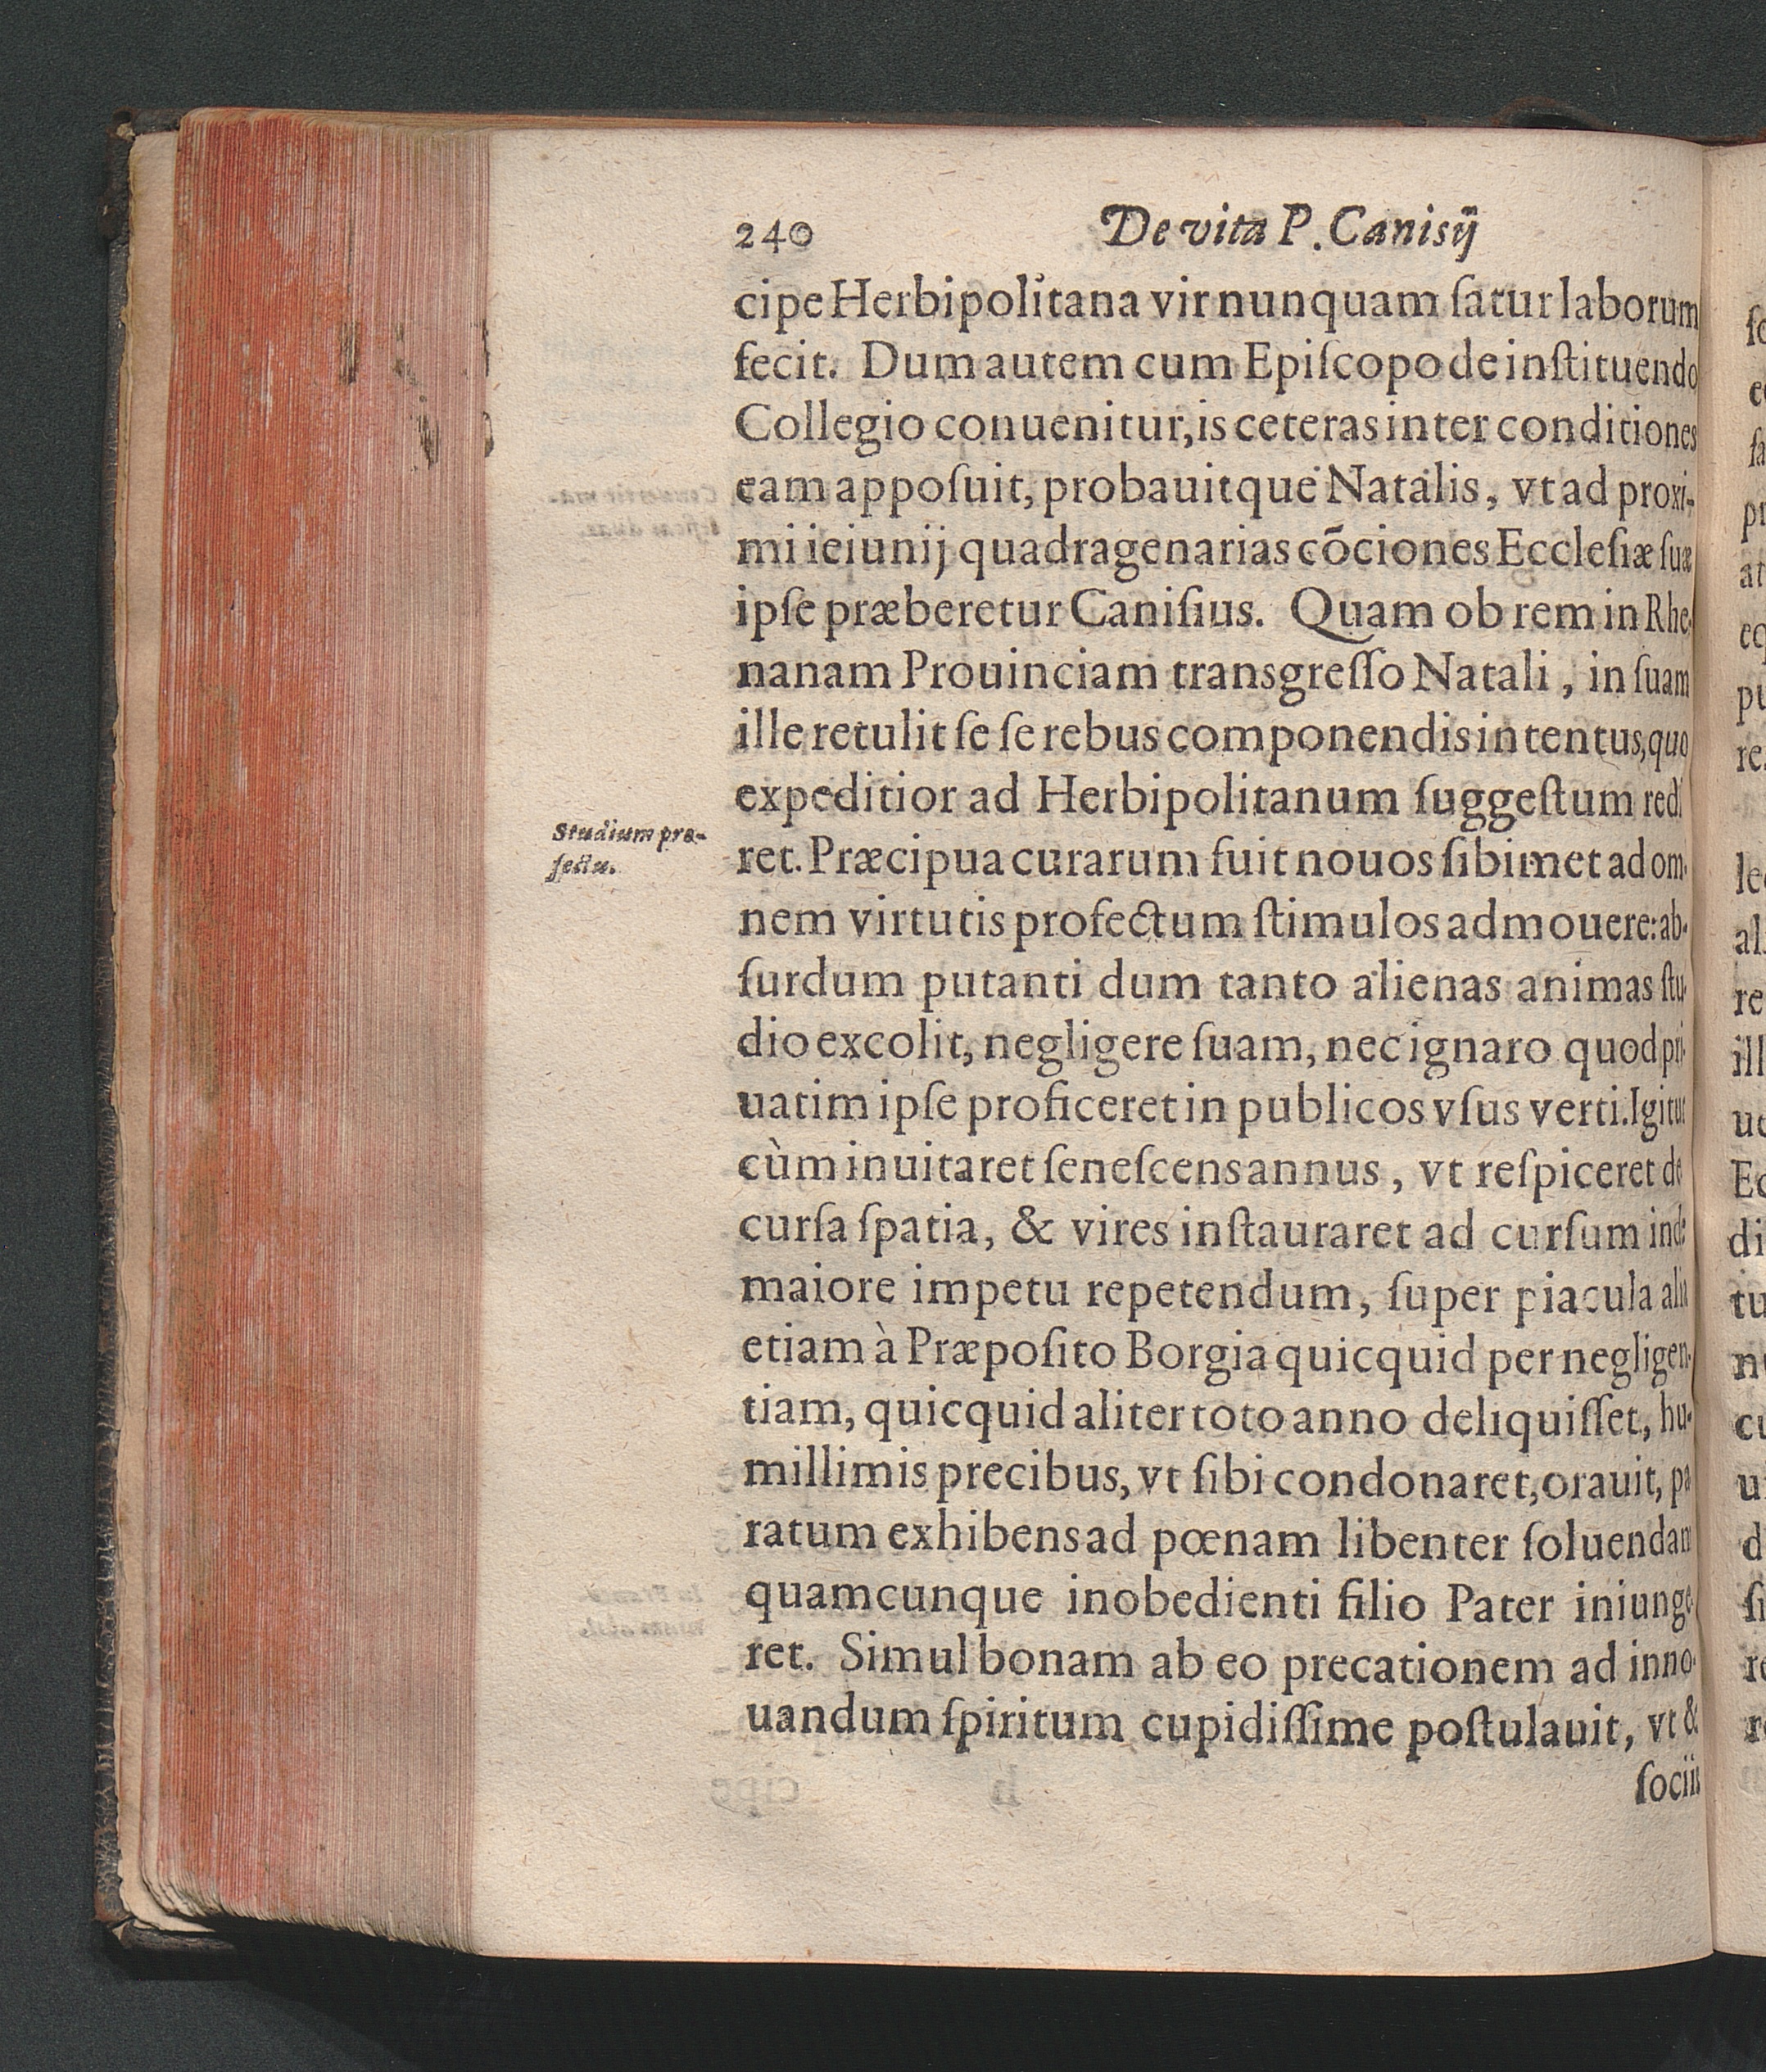 240 De vita P. Canisij
cipe Herbipolitana vir nunquam ſatur laborum
fecit. Dum autem cum Epiſcopo de inſtituendo
Collegio conuenitur, is ceteras inter conditiones
eam appoſuit, probauitque Natalis, vt ad proxi-
mi ieiunij quadragenarias cõciones Eccleſiæ ſuæ
ipſe præberetur Caniſius. Quam ob rem in Rhe-
nanam Prouinciam transgreſſo Natali, in ſuam
ille retulit ſe ſe rebus componendis intentus, quo
expeditior ad Herbipolitanum ſuggeſtum redi
Studium pro-
fectu.
ret. Præcipua curarum fuit nouos ſibimet ad om-
nem virtutis profectum ſtimulos admouere: ab-
ſurdum putanti dum tanto alienas animas ſtu-
dio excolit, negligere ſuam, nec ignaro quod pri-
uatim ipſe proficeret in publicos vſus verti. Igitur
cùm inuitaret ſeneſcens annus, vt reſpiceret de
curſa ſpatia, & vires inſtauraret ad curſum inde
maiore impetu repetendum, ſuper piacula alia
etiam à Præpoſito Borgia quicquid per negligen-
tiam, quicquid aliter toto anno deliquiſſet, hu-
millimis precibus, vt ſibi condonaret, orauit, pa
ratum exhibens ad pœnam libenter ſoluendam
quamcunque inobedienti filio Pater iniunge
ret. Simul bonam ab eo precationem ad inno-
uandum ſpiritum cupidiſſime poſtulauit, vt &
ſociis